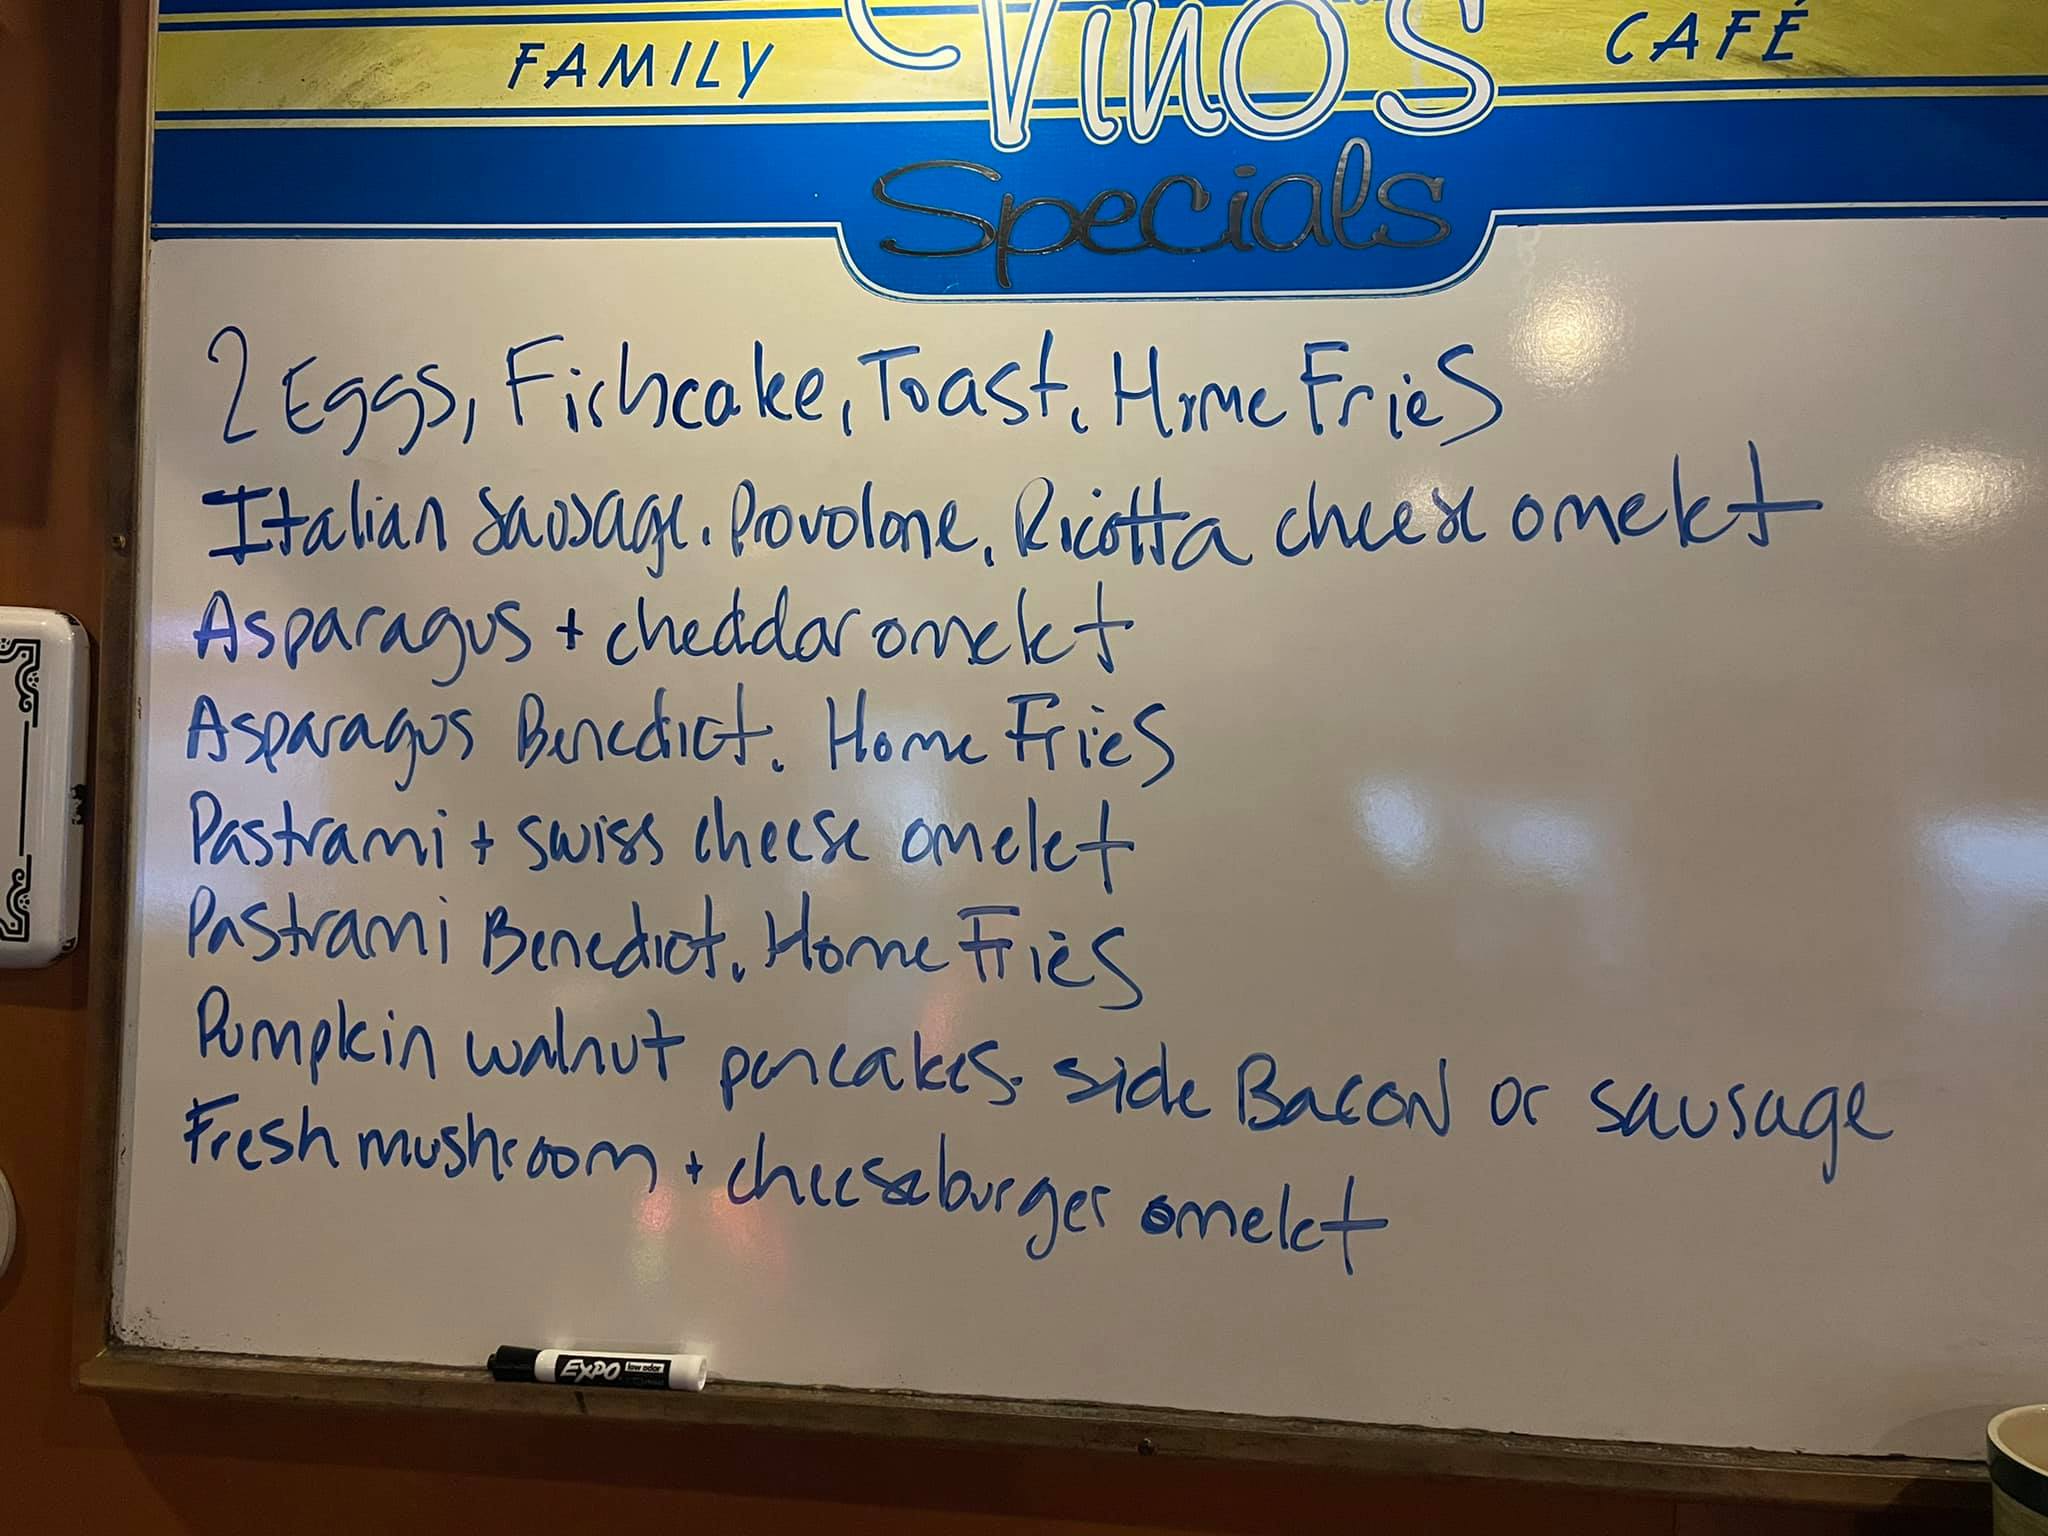 FAMILY Vino's CAFÉ
Specials
2 Eggs, Fishcake, Toast, Home Fries
Italian Sausage, Provolone, Ricotta cheese omelet
Asparagus + cheddar omelet
Asparagus Benedict, Home Fries
Pastrami + swiss cheese omelet
Pastrami Benedict, Home Fries
Pumpkin walnut pancakes. side Bacon or sausage
Fresh mushroom + cheeseburger omelet
EXPO low odor